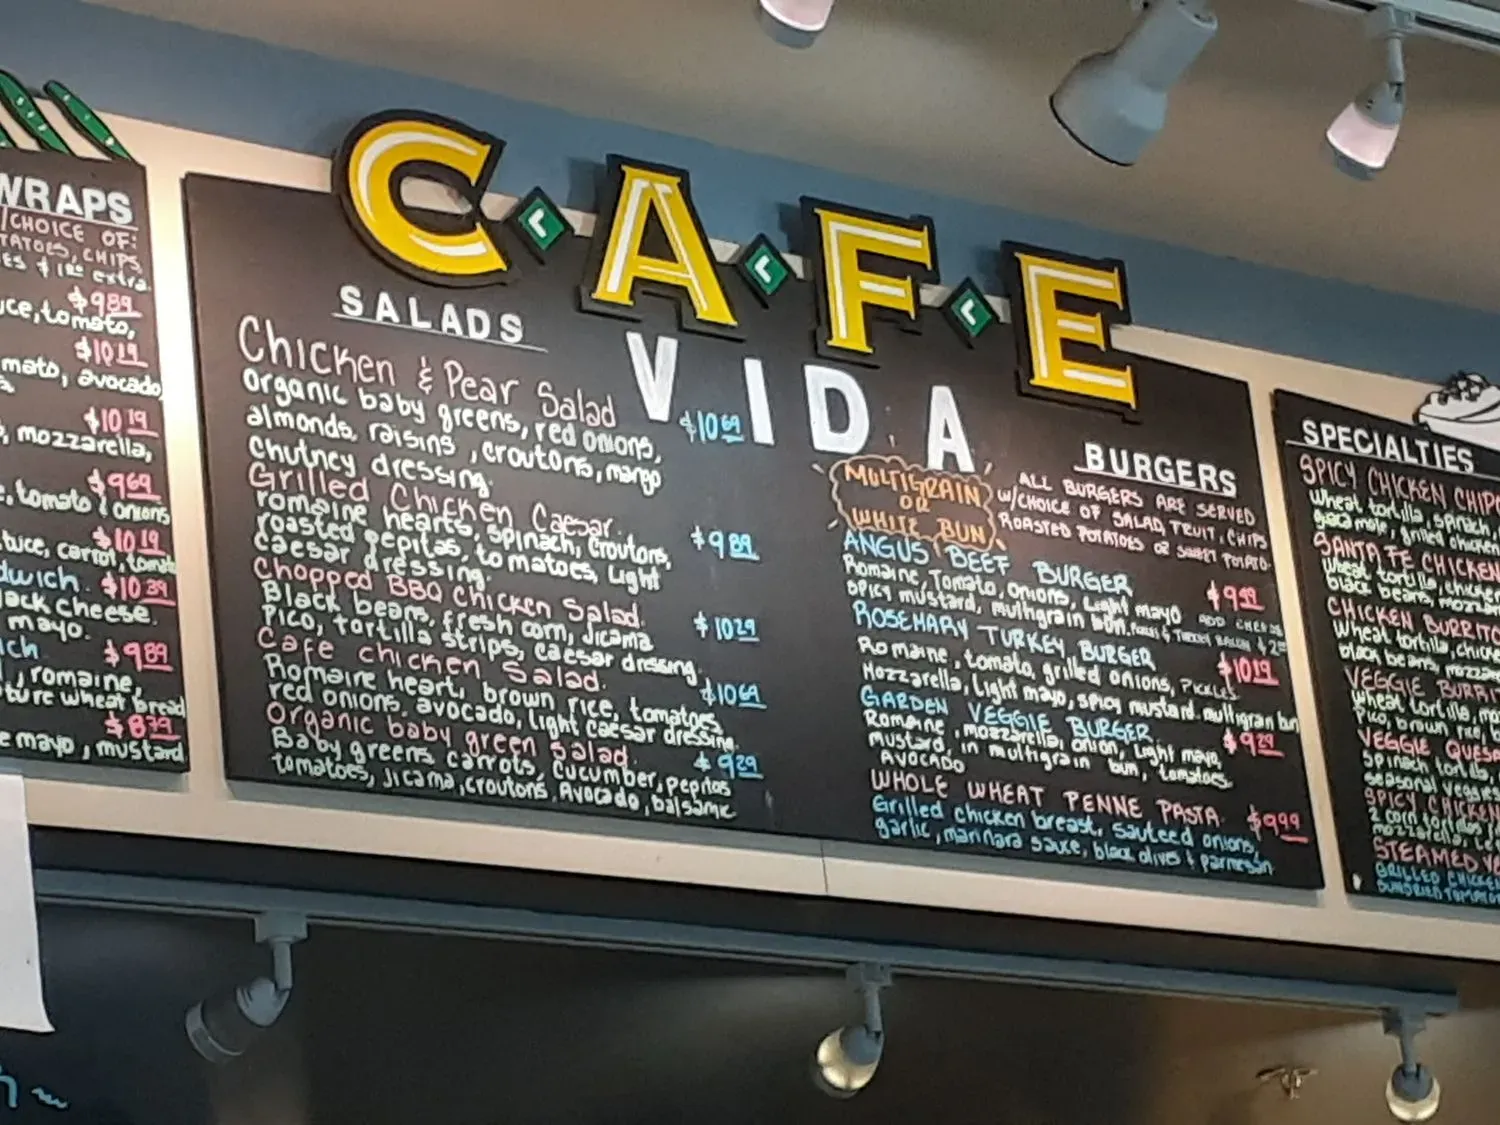 WRAPS
/CHOICE OF:
TATOES, CHIPS
ES $1 extra.
$9.89
uce, tomato,
$10.19
mato, avocado
$10.19
, mozzarella,
$9.69
e, tomato & onions
$10.19
tuce, carrot, tomato
dwich. $10.39
lack cheese.
mayo.
ich $9.89
, romaine,
ture wheat bread
$8.79
e mayo, mustard
CAFE
VIDA
SALADS
Chicken & Pear Salad $10.69
Organic baby greens, red onions,
almonds, raisins, croutons, mango
Chutney dressing.
Grilled Chicken Caesar. $9.89
romaine hearts, spinach, croutons,
roasted pepitas, tomatoes, Light
caesar dressing.
Chopped BBQ Chicken Salad. $10.29
Black beans, fresh corn, Jicama
Pico, tortilla strips, caesar dressing.
Cafe chicken Salad. $10.69
Romaire heart, brown rice, tomatoes
red onions. avocado, light caesar dressing.
Organic baby green salad. $9.29
Baby greens, carrots, Cucumber, pepitas
tomatoes, Jicama, croutons, Avocado, balsamic
MULTIGRAIN
OR
WHITE BUN
BURGERS
ALL BURGERS ARE SERVED
W/CHOICE OF SALAD, FRUIT, CHIPS
ROASTED POTATOES OR SWEET POTATO.
ANGUS BEEF BURGER $9.99
Romaine, Tomato, onions, Light mayo ADD CHEESE
spicy mustard, multigrain bun. TURKEY BACON
ROSEMARY TURKEY BURGER $10.19
Romaine, tomato, grilled onions, PICKLES
Mozzarella, Light mayo, spicy mustard. multigrain bun
GARDEN VEGGIE BURGER $9.29
Romaine, mozzarella, onion, Light mayo
mustard, in multigrain bun, tomatoes
AVOCADO
WHOLE WHEAT PENNE PASTA. $9.99
Grilled chicken breast, sauteed onions,
garlic, marinara sauce, black olives & parmesan
SPECIALTIES
SPICY CHICKEN CHIPO
Wheat tortilla, spinach
guacamole, grilled chicken
SANTA FE CHICKEN
Wheat tortilla, chicken
black beans, mozzar
CHICKEN BURRITO
Wheat tortilla, chicke
black beans, mozzar
VEGGIE BURRIT
Wheat tortilla, mo
Pico, brown rice, b
VEGGIE QUESA
Spinach tortilla,
seasonal veggies
SPICY CHICKEN
2 corn tortillas,
mozzarella, le
STEAMED VE
GRILLED CHICKEN
SUNDRIED TOMATO